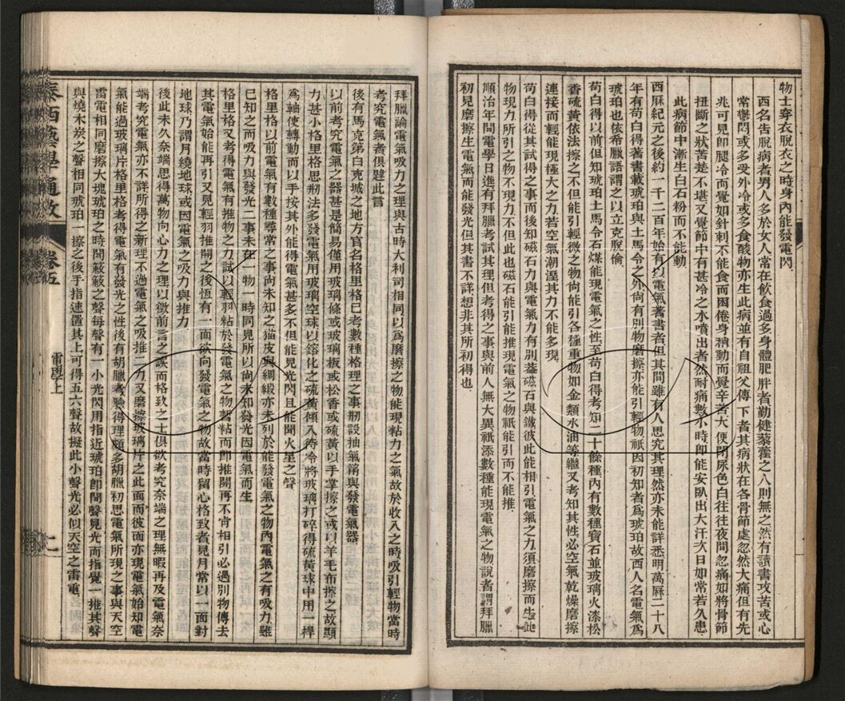 物士穿衣脫衣之時身內能發電閃
西名告脫病者男人多於女人常在飮食過多身體肥胖者勤健藜藿之人則無之然有讀書攻苦或心
常鬱悶或多受外冷或多食酸物亦生此病並有自祖父傳下者其病狀在各骨節處忽然大痛但有先
兆可見卽腿冷而覺如針刺不能食而困倦身稍動而覺辛苦大便閉尿色白往往夜間忽痛如將骨節
扭斷之狀苦楚不堪又覺節中有甚冷之水噴出者然耐痛數小時卽能安臥出大汗次日如常若久患
此病節中漸生白石粉而不能動
西厤紀元之後約一千二百年始有以電氣著書者但其間雖有人思究其理然亦未能詳悉明萬厤二十八
年有苟白得著書載琥珀與土馬令之外尙有別物磨擦亦能引輕物祇因初知者爲琥珀故西人名電氣爲
琥珀也依希臘語謂之以立克脫倫
苟白得以前但知琥珀土馬令石煤能現電氣之性至苟白得考知二十餘種內有數種寶石並玻璃火漆松
香硫黃依法擦之不但能引輕微之物尙能引各種重物如金類水油等繼又考知其性必空氣乾燥磨擦
連接而輕能現極大之力若空氣潮溼其力不能多現
苟白得從其試得之事而後知磁石力與電氣力有別蓋磁石與鐵彼此能相引電氣之力須磨擦而生此
物現力所引之物不現力不但此也磁石能引能推現電氣之物祇能引而不能推
順治年間電學日進有拜臘考試其理但考得之事與前人無大異祇添數種能現電氣之物說者謂拜臘
初見磨擦生電氣而能發光但其書不詳想非其所初得也
拜臘論電氣吸力之理與古時大利司相同以爲磨擦之物能現粘力之氣故於收入之時吸引輕物當時
考究電氣者俱韙此言
後有馬克第白克城之地方官名格里格已考數種格理之事刱設抽氣筩與發電氣器
以前考究電氣之器甚是簡易僅用玻璃條或玻璃板或松香或硫黃以手掌擦之或以羊毛布擦之故顯
力甚小格里格思刱法多發電氣用玻璃空球以鎔化之硫黃傾入待冷將玻璃打碎得硫黃球中用一桿
爲軸使轉動而以手按其外能得電氣甚多不但能見光閃且能聞火星之聲
格里格以前電氣有數種尋常之事尙未知之猫皮與綢緞亦未列於能發電氣之物內電氣之有吸力雖
已知之而吸力與發光二事未在一物一時同見所以尙未知發光因電氣而生
格里格又考得電氣有推物之力試以輕羽粘於發電氣之物若粘而卽推開再不肯相引必過別物傳去
其電氣始能再引又見輕羽推開之後恆有一面欲向發電氣之物故當時留心格致者見月常以一面對
地球乃謂月繞地球或因電氣之吸力與推力
後此未久奈端思得萬物向心力之理以徵前言之誤而格致之士俱欲考究奈端之理無暇再及電氣奈
端考究電氣亦不詳所得之新理不過電氣之吸推二力又磨擦玻璃片之此面而彼面亦現電氣始知電
氣能過玻璃片格里格考得電氣有發光之性後有胡臘考驗得理頗多胡臘初思電氣所現之事與天空
雷電相同磨擦大塊琥珀之時聞簌簌之聲每聲有一小光閃用指近琥珀卽聞聲見光而指覺一推其聲
與燒木炭之聲相同琥珀一擦之後手指速置其上可得五六聲故擬此小聲光必似天空之雷電
泰西藝學通攷
卷五
電學上